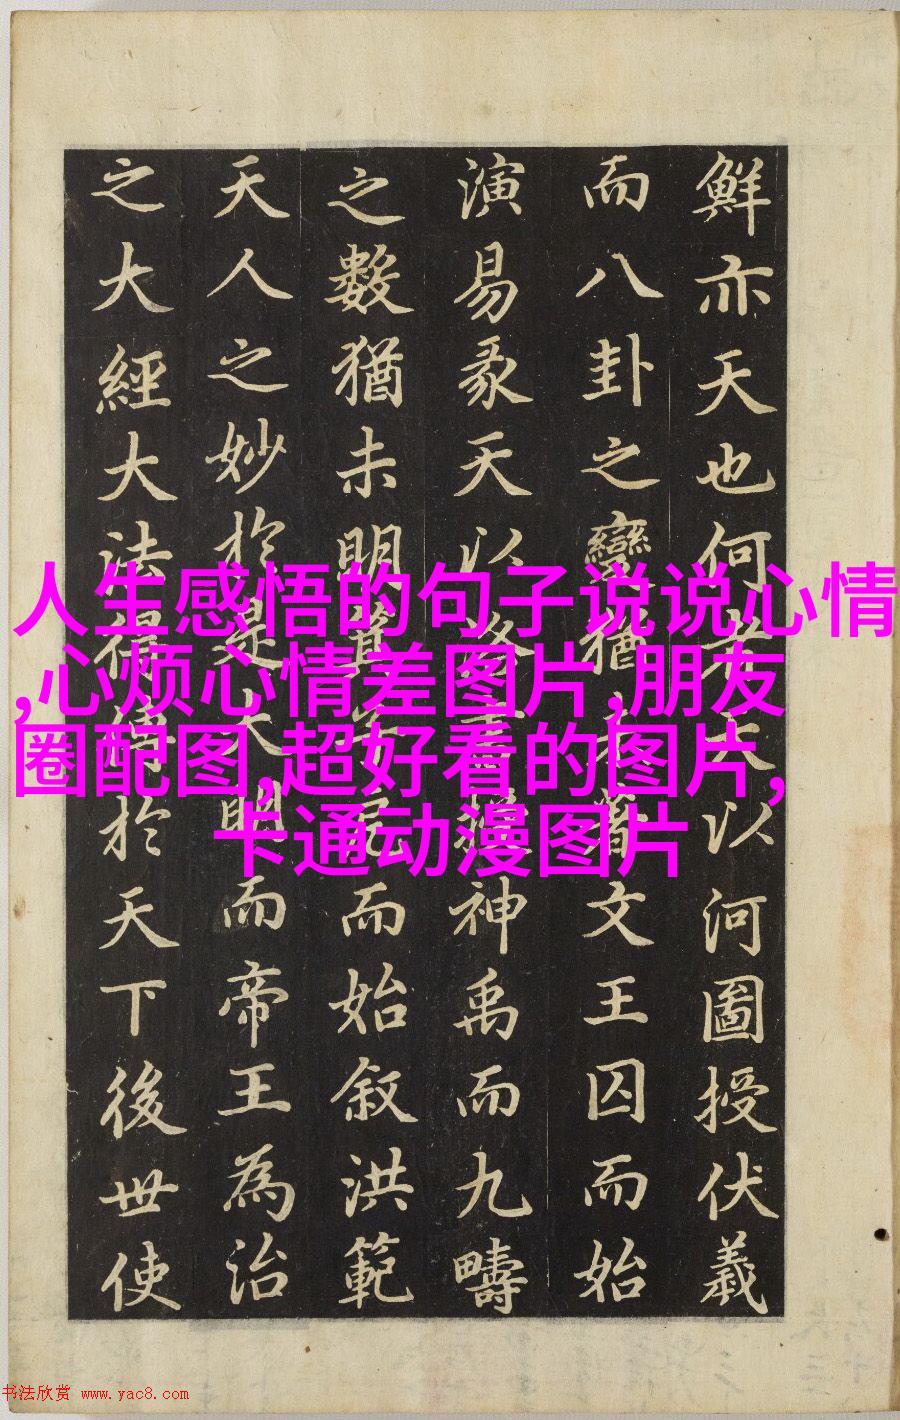 鮮亦天也何者天以河圖授伏羲
而八卦之變猶未著文王囚而始
演易彖天以洛書錫神禹而九疇
之數猶未明箕子而始叙洪範
天人之妙於是大明而帝王為治
之大經大法得傳於天下後世使
人生感悟的句子说说心情
,心烦心情差图片,朋友
圈配图,超好看的图片,
卡通动漫图片
书法欣赏 www.yac8.com